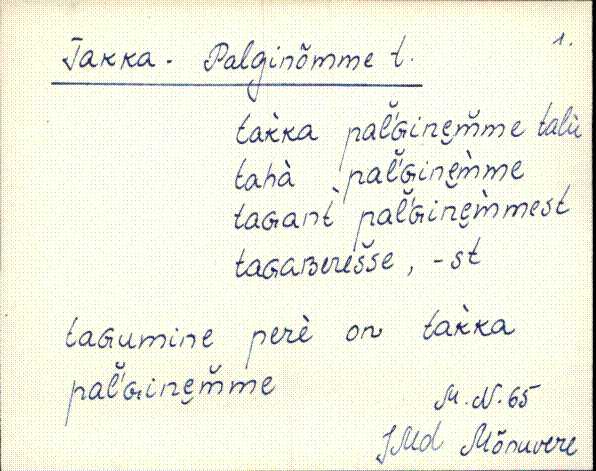 Takka - Palginõmme t. 1.
tak̀ka pal̆'ɢine̮m̆me talù
tahà pal̆'ɢine̮m̀me
taɢant̀ pal̆'ɢine̮m̀mest
taɢaʙerès̆se, -st
taɢumine perè on tak̀ka
pal̆'ɢine̮m̆me
M. N. 65
JMd Mõnuvere